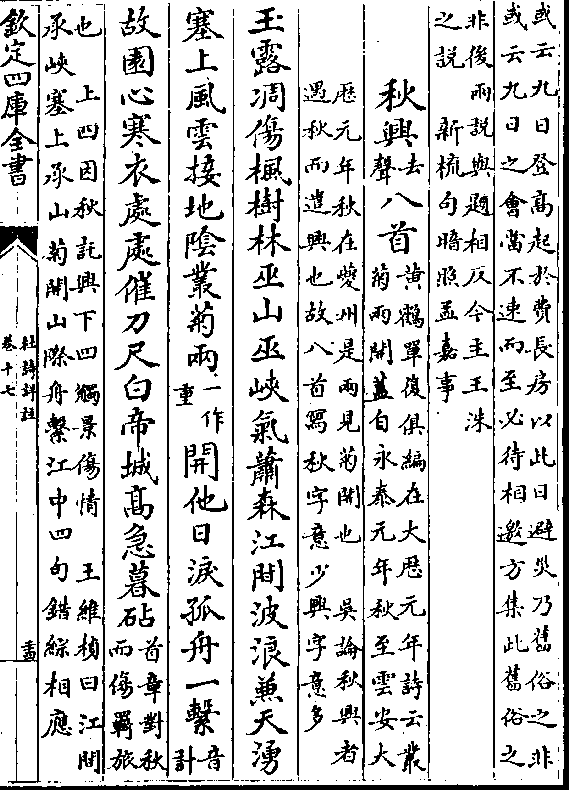 或云九日登高起於費長房以此日避災乃舊俗之非
或云九日之會當不速而至必待相邀方集此舊俗之
非後兩説與題相反今主王洙
之説 新梳句暗照孟嘉事
秋興去聲八首黄鶴單復俱編在大歴元年詩云叢
菊兩開蓋自永泰元年秋至雲安大
歴元年秋在夔州是兩見菊開也 吳論秋興者
遇秋而遣興也故八首寫秋字意少興字意多
玉露凋傷楓樹林巫山巫峽氣蕭森江間波浪兼天湧
塞上風雲接地陰叢菊兩一作重開他日淚孤舟一繫音計
故園心寒衣處處催刀尺白帝城高急暮砧首章對秋
而傷羇旅
也 上四因秋託興下四觸景傷情 王維楨曰江間
承峽塞上承山菊開山際舟繫江中四句錯綜相應
欽定四庫全書
杜詩詳註
卷十七